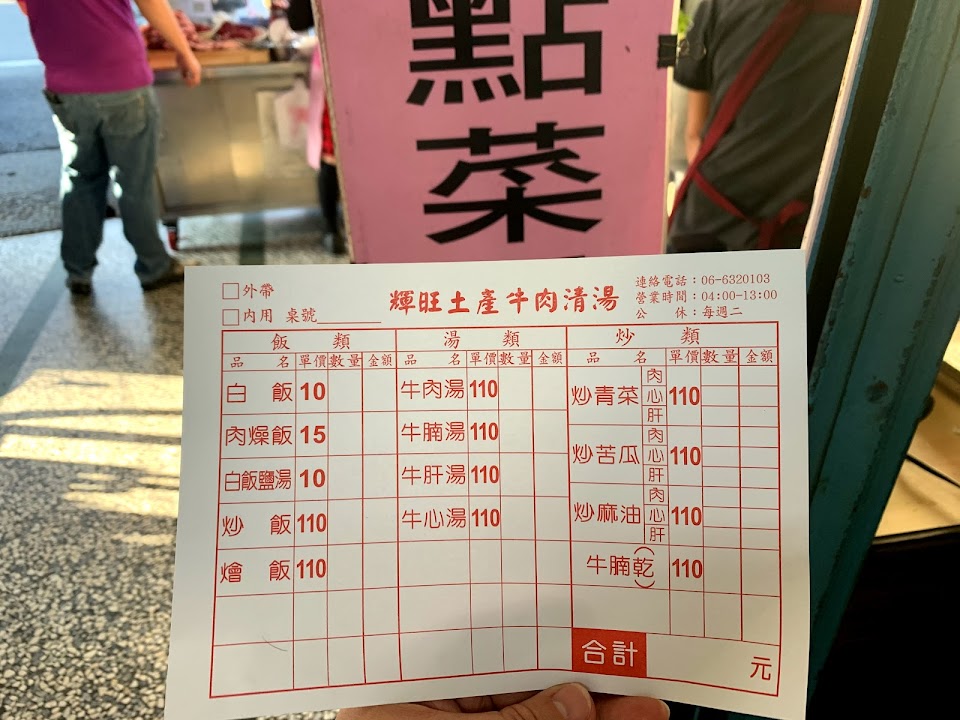 點
菜
外帶
內用 桌號
輝旺土產牛肉清湯
連絡電話：06-6320103
營業時間：04:00-13:00
公　休：每週二
飯類 湯類 炒類
品名 單價 數量 金額 品名 單價 數量 金額 品名 單價 數量 金額
白飯 10 牛肉湯 110 炒青菜 肉 心 肝 110
肉燥飯 15 牛腩湯 110 炒苦瓜 肉 心 肝 110
白飯鹽湯 10 牛肝湯 110
炒飯 110 牛心湯 110 炒麻油 肉 心 肝 110
燴飯 110 牛腩(乾) 110
合計 元